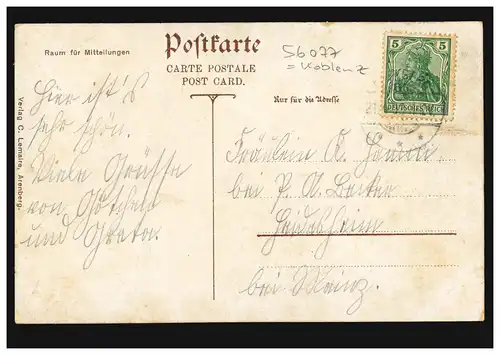 Postkarte
CARTE POSTALE
POST CARD.
Raum für Mitteilungen
Nur für die Adresse
56077
= Koblenz
5 5
DEUTSCHES REICH
Verlag C. Lemaire, Arenberg.
Hier ist's
sehr schön.
Viele Grüsse
von
und Greta.
Fräulein
bei
bei Mainz.